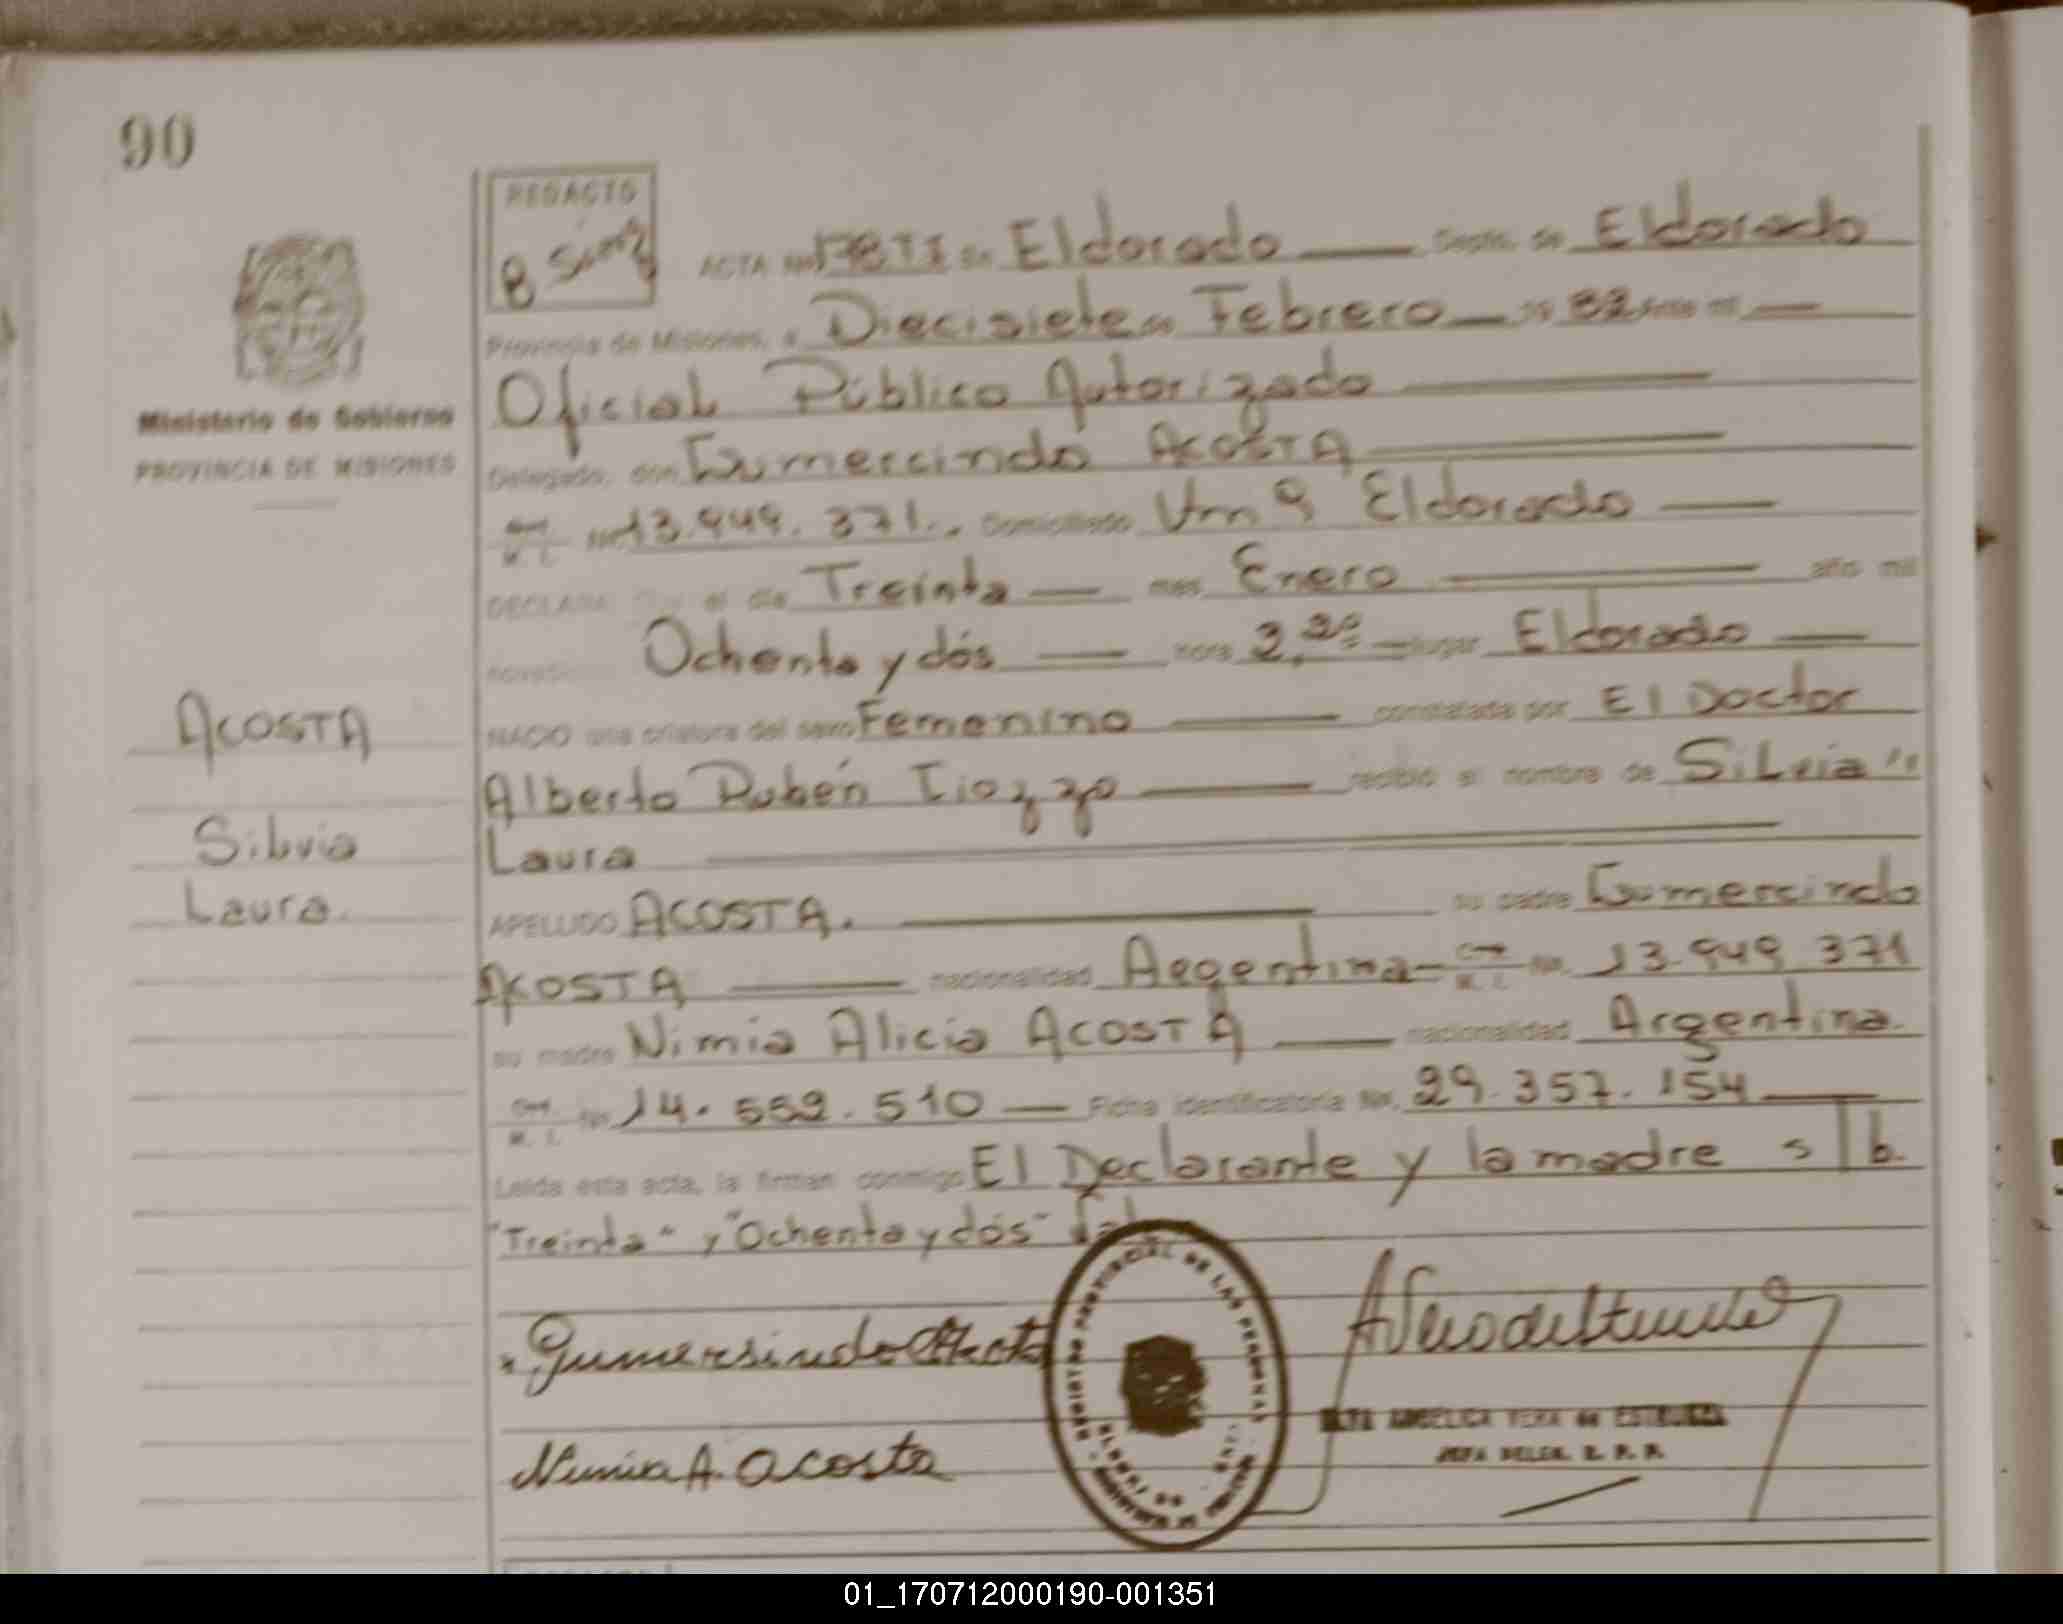 90
REDACTO
ACTA Nro 178 TI en Eldorado Depto. de Eldorado
Provincia de Misiones, a Diecisiete de Febrero 19 82
Oficial Público Autorizado
Ministerio de Gobierno
PROVINCIA DE MISIONES
Delegado, don Gumercindo ACOSTA
M. I. Nro 13.949.371. Domiciliado Km 9 Eldorado
DECLARA Que el día Treinta mes Enero año mil
novec Ochenta y dós hora 2,30 lugar Eldorado
NACIO una criatura del sexo Femenino constatada por El Doctor
Alberto Rubén Tiozzo recibió el nombre de Silvia
Laura
ACOSTA
Silvia
Laura.
APELLIDO ACOSTA. su padre Gumercindo
ACOSTA nacionalidad Argentina M. I. Nro. 13.949.371
su madre Nimia Alicia ACOSTA nacionalidad Argentina.
M. I. Nro 14.552.510 Ficha identificatoria Nro. 29.357.154
Leída esta acta, la firman conmigo El Declarante y la madre s/b.
"Treinta" y "Ochenta y dós"
Gumersindo Acosta
Nimia A. Acosta
REGISTRO PROVINCIAL DE LAS PERSONAS
ANGELICA VERA de
JEFA DELEG. R. P. P.
01_170712000190-001351